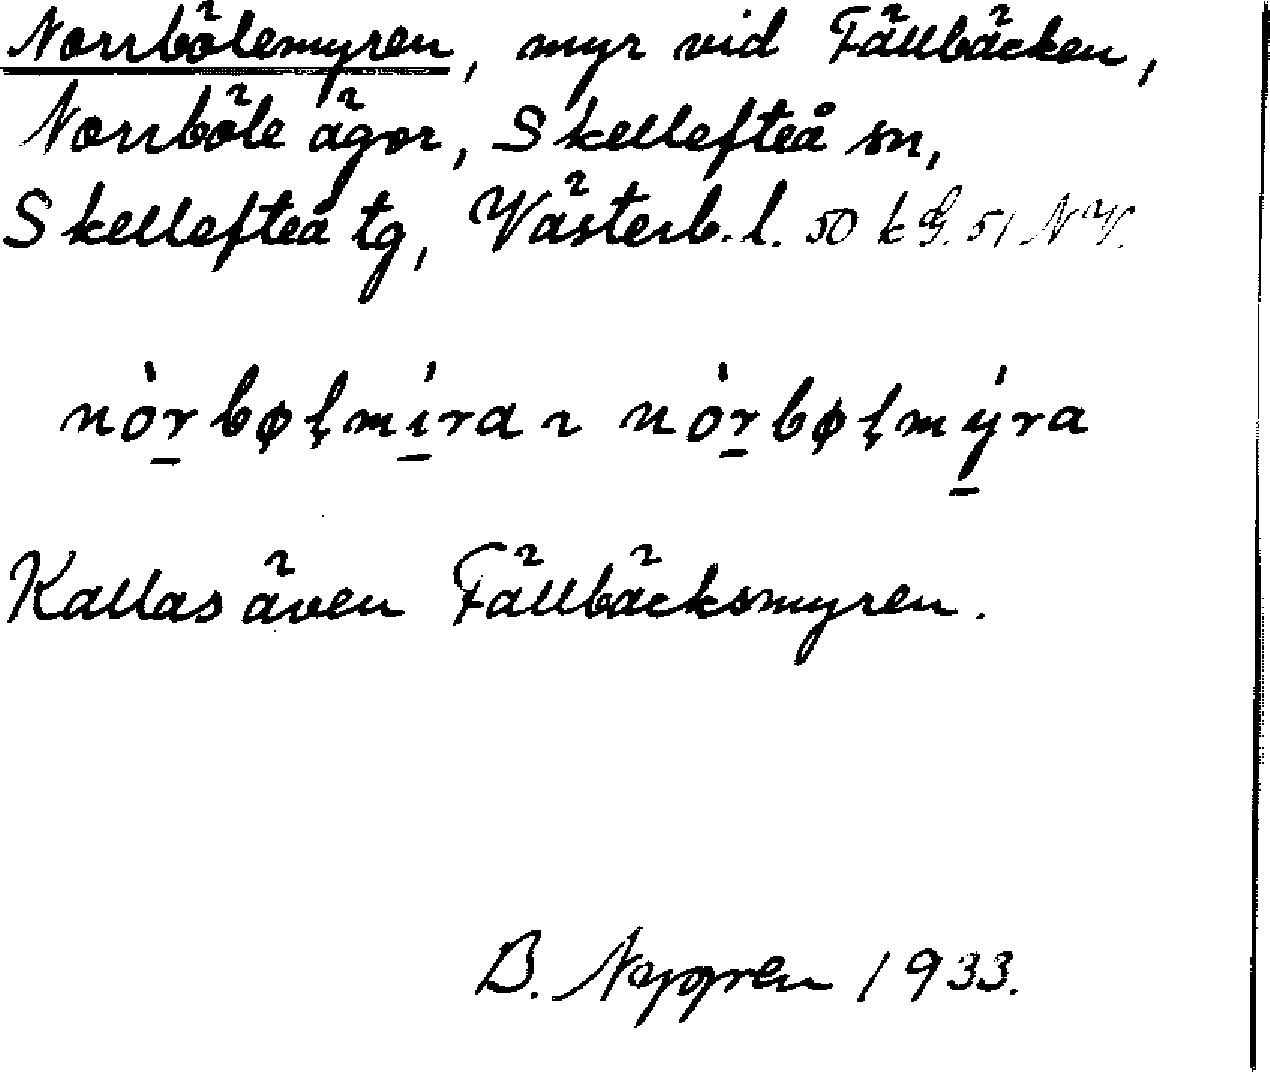 Norrbölemyren, myr vid Fällbäcken,
Norrböle ägor, Skellefteå sn,
Skellefteå tg, Västerb. l. 50 k G. 51 NV.
nòr̲bøɬmí̲ra ~ nòr̲bøɬmý̲ra
Kallas även Fällbäcksmyren.
B. Nygren 1933.